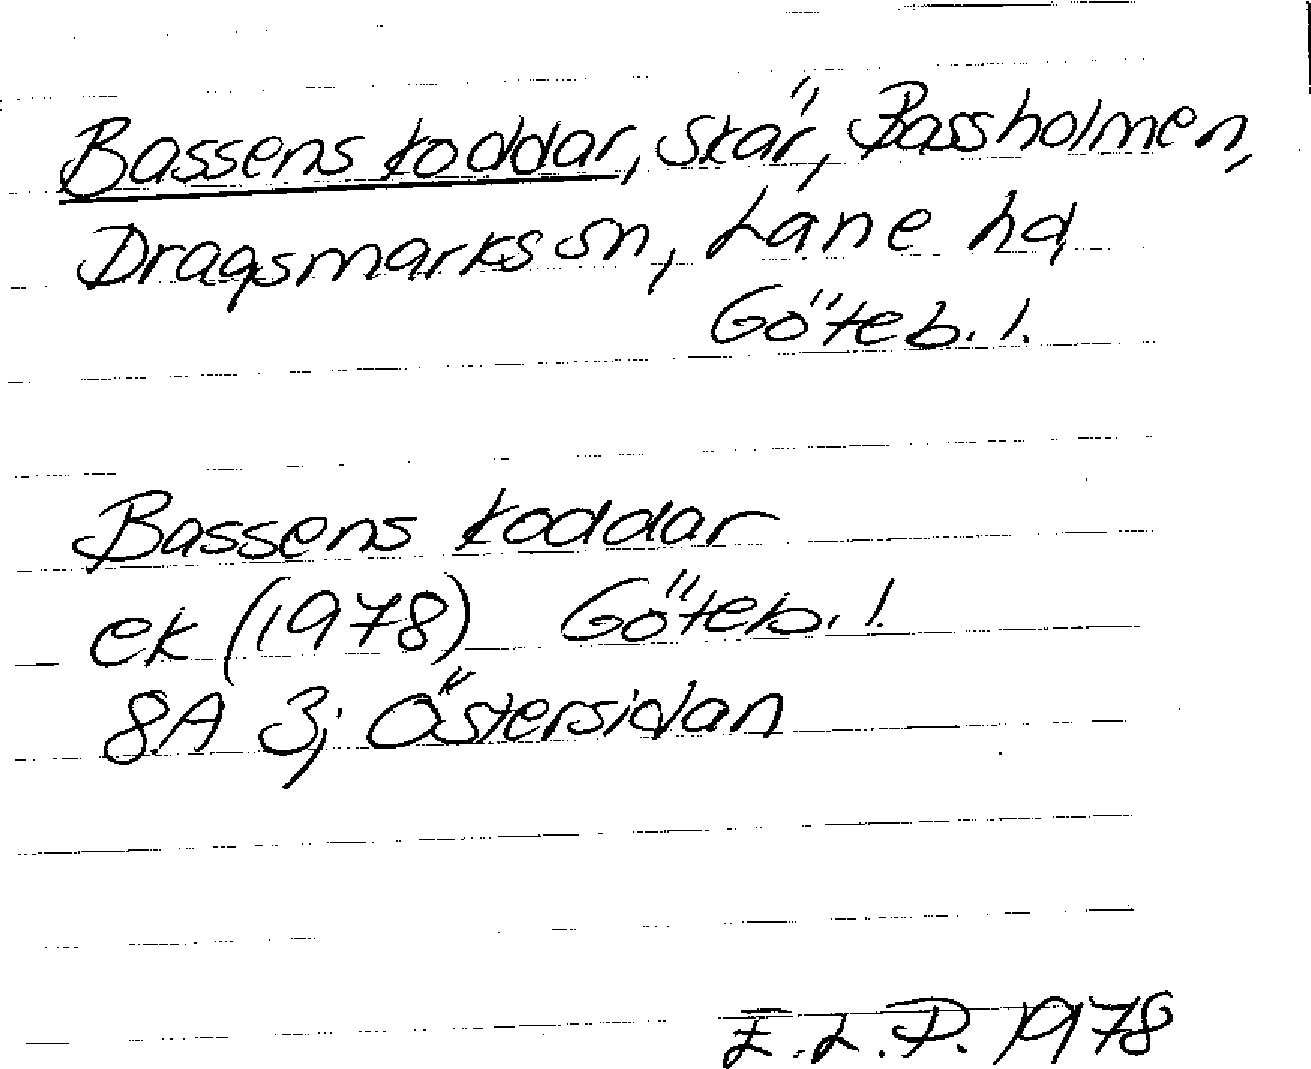 Bassens koddar, skär, Bassholmen,
Dragsmarks sn, Lane hd
Göteb. l.
Bassens koddar
ek (1978) Göteb. l.
8A 3; Östersidan
E.L.D. 1978